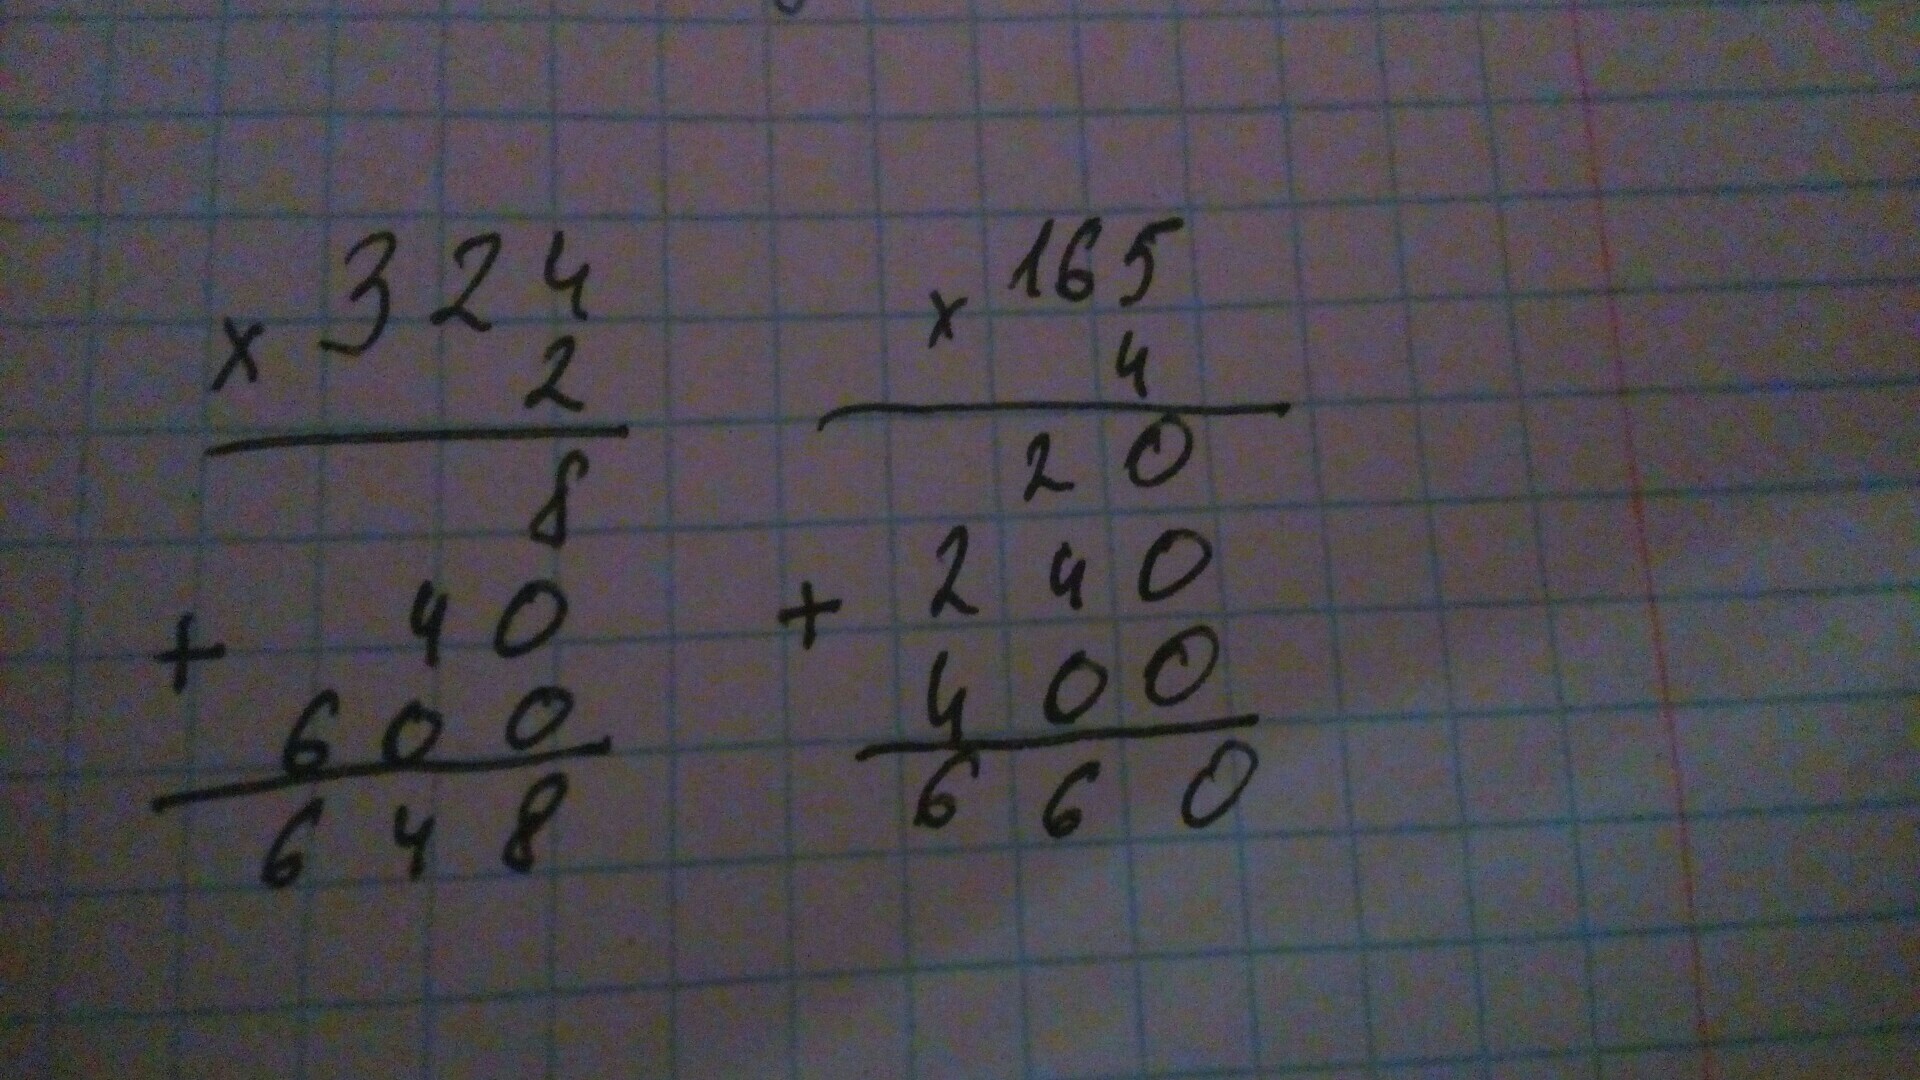 324
× 2
8
+ 40
600
648
165
× 4
20
+ 240
400
660